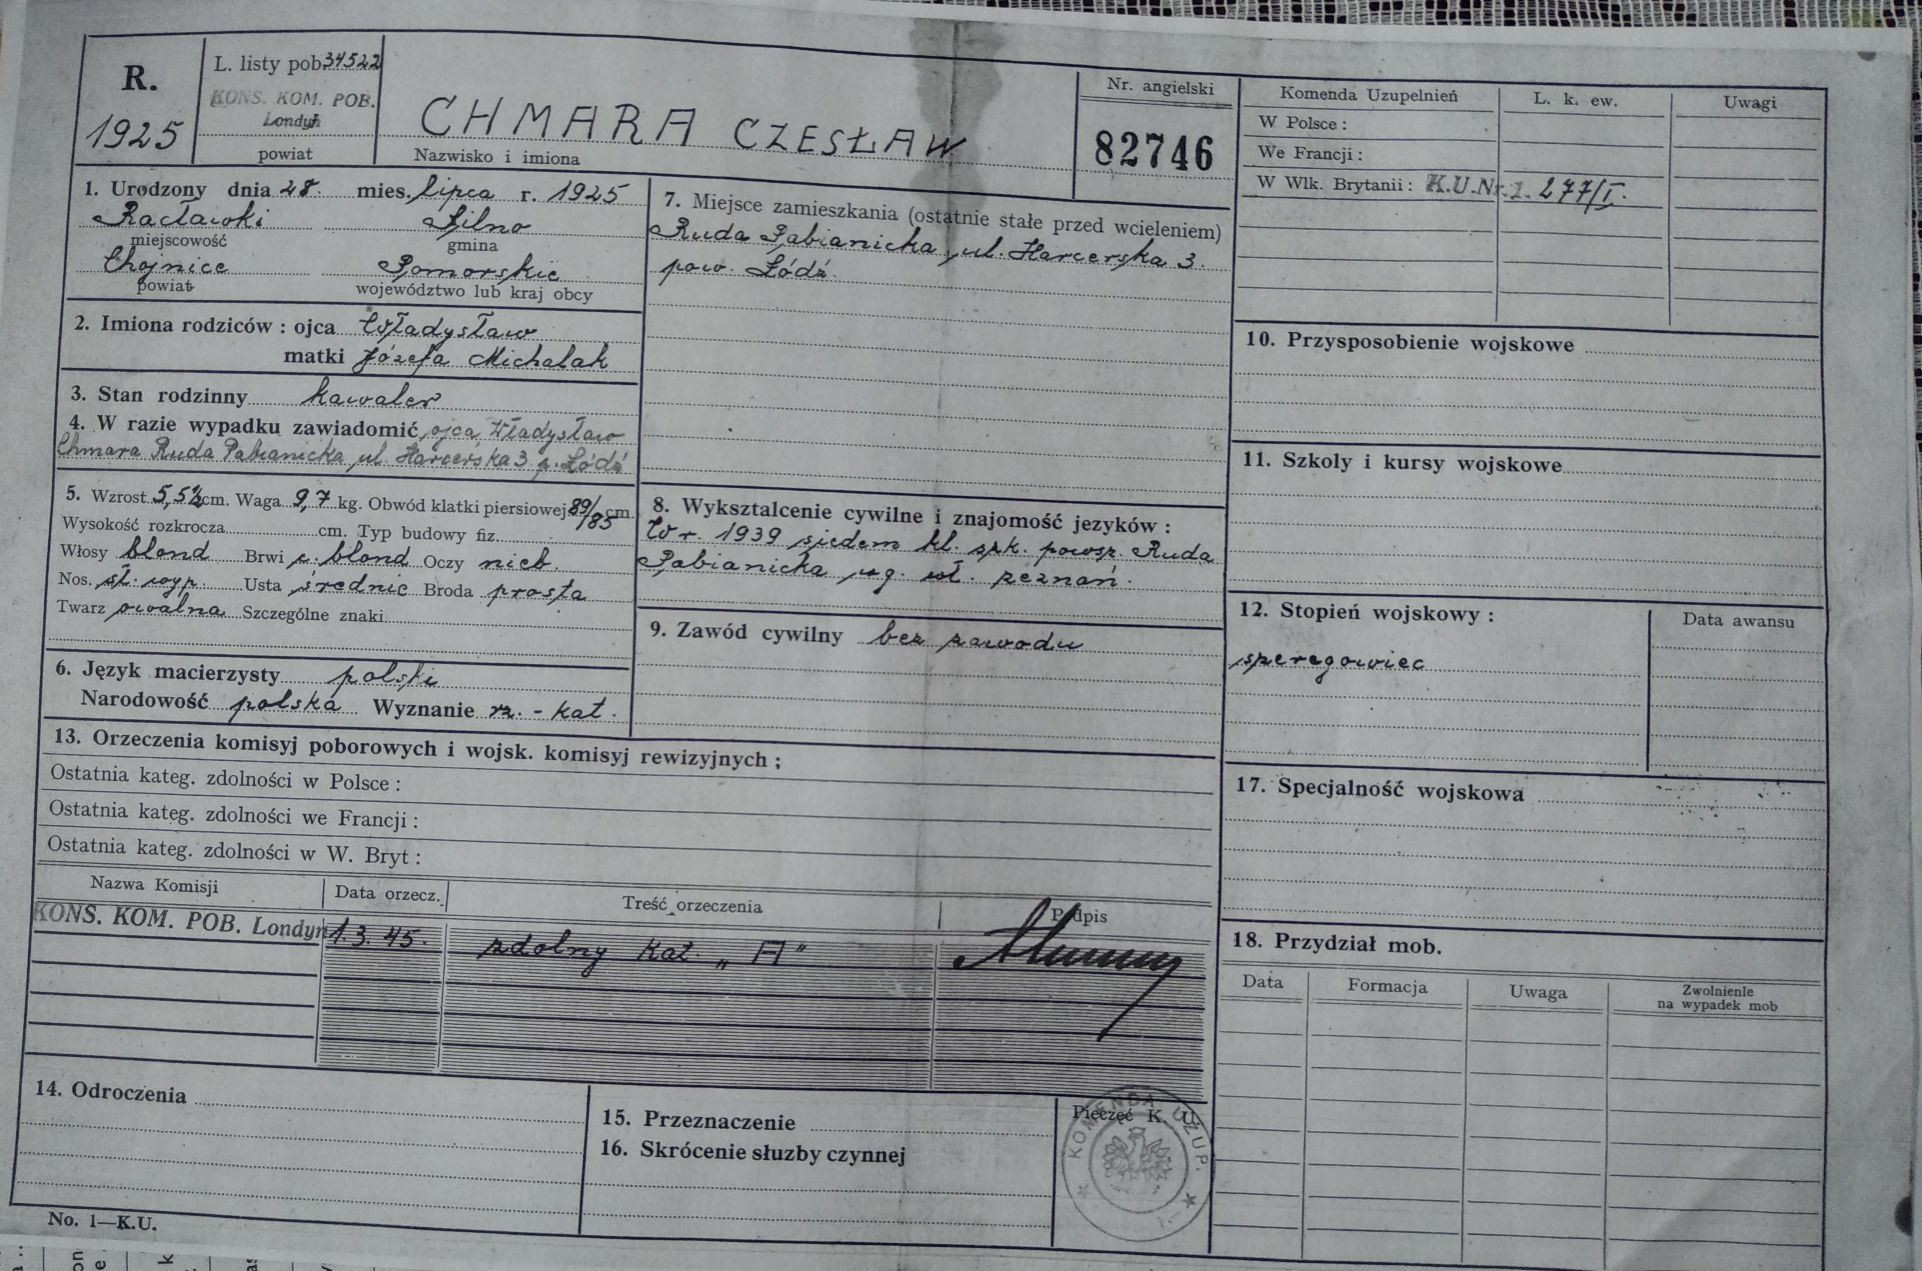 R.
1925
L. listy pob 34522
KONS. KOM. POB.
Londyn
powiat
CHMARA CZESŁAW
Nazwisko i imiona
Nr. angielski
82746
Komenda Uzupelnień L. k. ew. Uwagi
W Polsce :
We Francji :
W Wlk. Brytanii : K.U.Nr.1. 277/I.
1. Urodzony dnia 28. mies. lipca r. 1925
Racławki Silno
miejscowość gmina
Chojnice Pomorskie
powiat województwo lub kraj obcy
2. Imiona rodziców : ojca Władysław
matki Józefa Michalak
3. Stan rodzinny kawaler
4. W razie wypadku zawiadomić ojca Władysław
Chmara Ruda Pabianicka, ul. Harcerska 3 p. Łódź
5. Wzrost 5,5½ cm. Waga 9,7 kg. Obwód klatki piersiowej 89/85 cm.
Wysokość rozkrocza cm. Typ budowy fiz.
Włosy blond Brwi c. blond Oczy nieb.
Nos. śł. wyp. Usta średnie Broda prosta
Twarz owalna Szczególne znaki
6. Język macierzysty polski
Narodowość polska Wyznanie rz. - kat.
7. Miejsce zamieszkania (ostatnie stałe przed wcieleniem)
Ruda Pabianicka, ul. Harcerska 3.
pow. Łódź.
8. Wyksztalcenie cywilne i znajomość jezyków :
W r. 1939 siedem kl. szk. powsz. Ruda
Pabianicka wg. wł. zeznań.
9. Zawód cywilny bez zawodu
10. Przysposobienie wojskowe
11. Szkoly i kursy wojskowe
12. Stopień wojskowy : Data awansu
szeregowiec
13. Orzeczenia komisyj poborowych i wojsk. komisyj rewizyjnych ;
Ostatnia kateg. zdolności w Polsce :
Ostatnia kateg. zdolności we Francji :
Ostatnia kateg. zdolności w W. Bryt :
Nazwa Komisji Data orzecz. Treść orzeczenia Podpis
KONS. KOM. POB. Londyn 1. 3. 45. zdolny kat. „A"
17. Specjalność wojskowa
18. Przydział mob.
Data Formacja Uwaga Zwolnienie
na wypadek mob
14. Odroczenia
15. Przeznaczenie
16. Skrócenie słuzby czynnej
Pieczęć K. U.
KOMENDA UZUP.
No. 1—K.U.